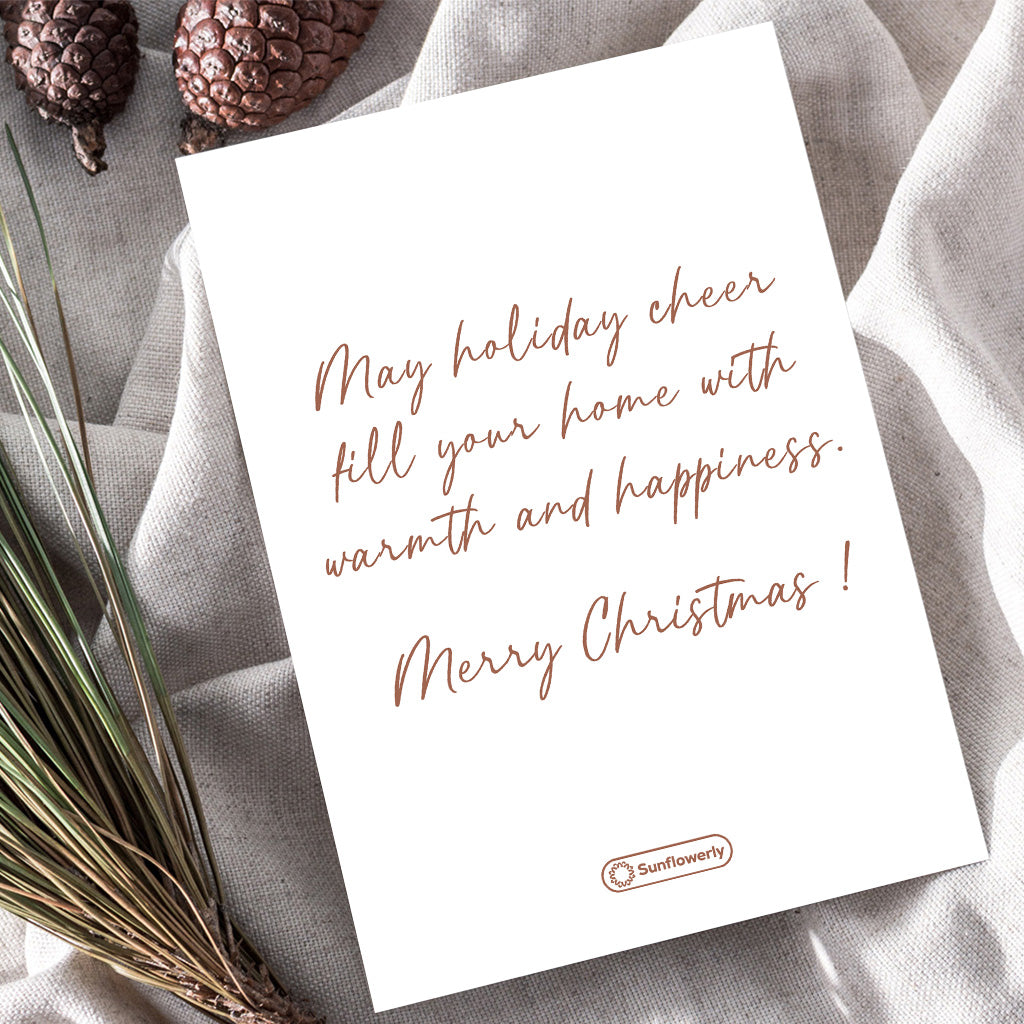 May holiday cheer
fill your home with
warmth and happiness.
Merry Christmas !
Sunflowerly